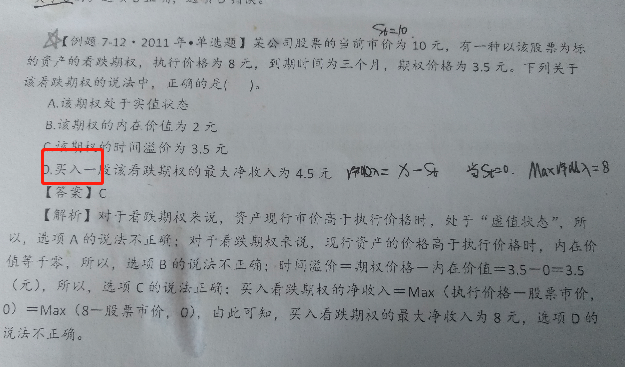 St=10
【例题 7-12·2011 年·单选题】某公司股票的当前市价为 10 元，有一种以该股票为标
的资产的看跌期权，执行价格为 8 元，到期时间为三个月，期权价格为 3.5 元。下列关于
该看跌期权的说法中，正确的是( )。
A.该期权处于实值状态
B.该期权的内在价值为 2 元
C.该期权的时间溢价为 3.5 元
D.买入一股该看跌期权的最大净收入为 4.5 元 净收入= X-St 当St=0. Max净收入=8
【答案】C
【解析】对于看跌期权来说，资产现行市价高于执行价格时，处于“虚值状态”，所
以，选项 A 的说法不正确；对于看跌期权来说，现行资产的价格高于执行价格时，内在价
值等于零，所以，选项 B 的说法不正确；时间溢价=期权价格-内在价值=3.5-0=3.5
（元），所以，选项 C 的说法正确；买入看跌期权的净收入=Max（执行价格-股票市价，
0）=Max（8-股票市价，0），由此可知，买入看跌期权的最大净收入为 8 元，选项 D 的
说法不正确。